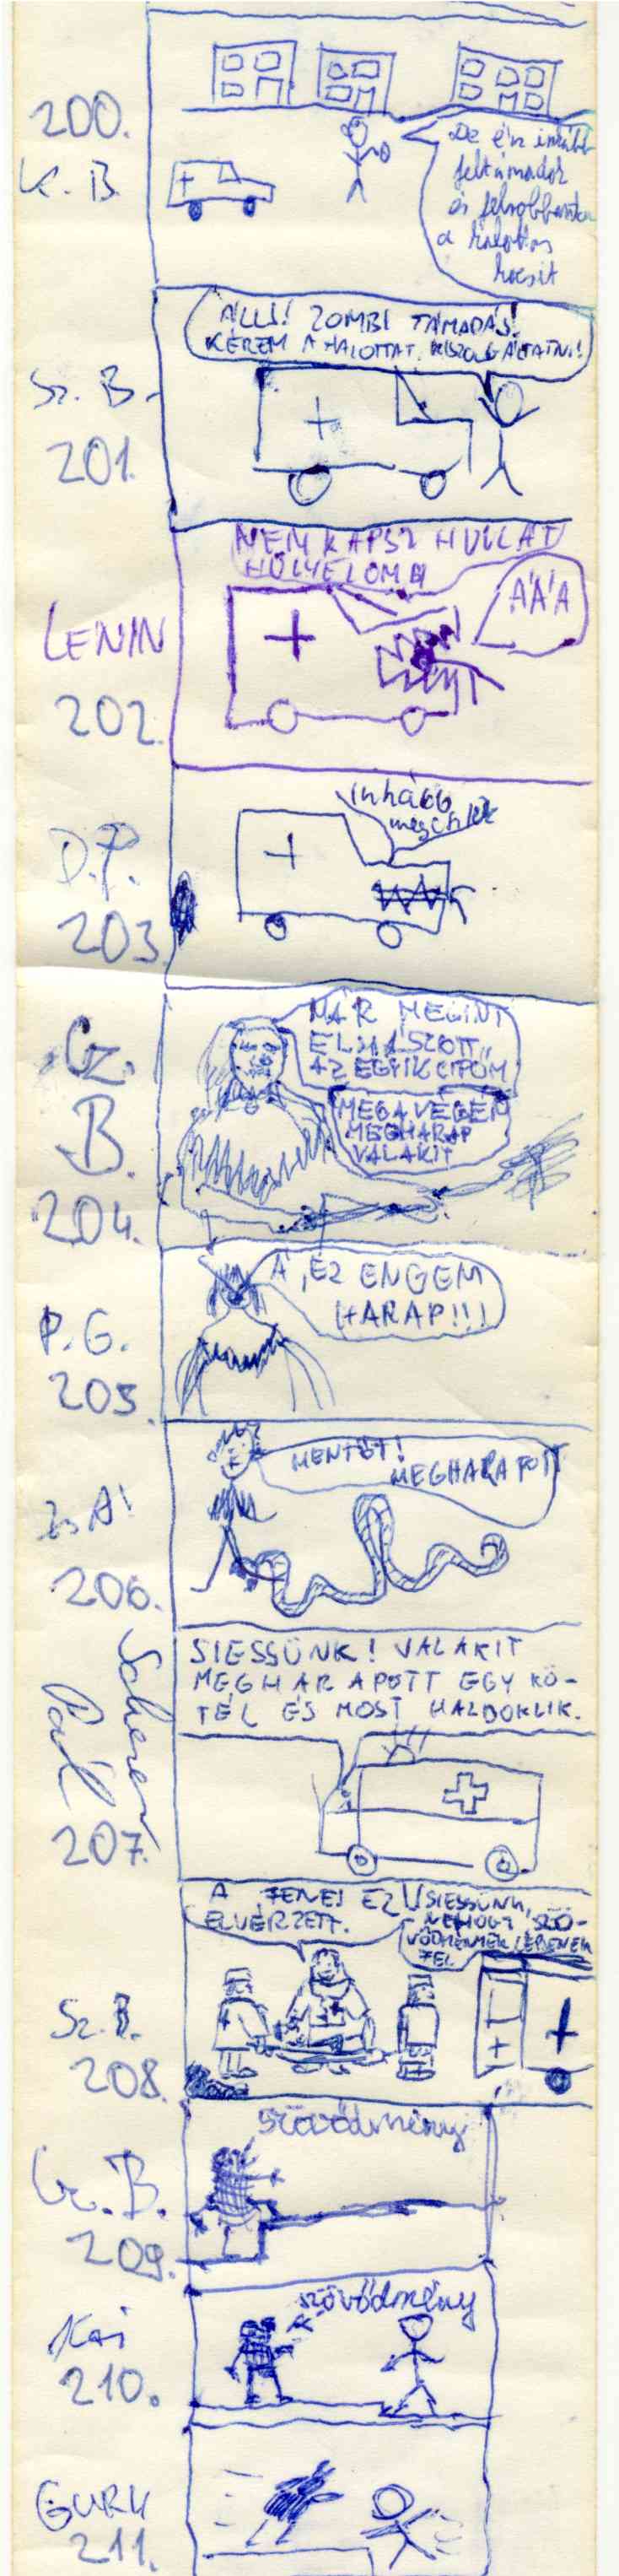 200.
K. B.
De én inkább
feltámadok
és felrobbantom
a halottas
kocsit
ÁLLJ! ZOMBI TÁMADÁS!
KÉREM A HALOTTAT KISZOLGÁLTATNI!
Sz. B.
201.
NEM KAPSZ HULLÁT
HÜLYE
ÁÁÁ
LENIN
202.
inkább
D.P.
203.
MÁR MEGINT
ELMÁSZOTT
AZ EGYIK CIPŐM
MÉG A VÉGÉN
MEGHARAP
VALAKIT
Cz.
B.
204.
Á, EZ ENGEM
HARAP!!!
P.G.
205.
MENTŐT!
MEGHARAPOTT
206.
SIESSÜNK! VALAKIT
MEGHARAPOTT EGY KÖ-
TÉL ÉS MOST HALDOKLIK.
Scherer
Pál
207.
A FENE! EZ
ELVÉRZETT.
SIESSÜNK,
NEHOGY SZÖ-
VŐDMÉNYEK LÉPJENEK
FEL
Sz. B.
208.
szövődmény
Cz. B.
209.
szövődmény
Kai
210.
GURU
211.